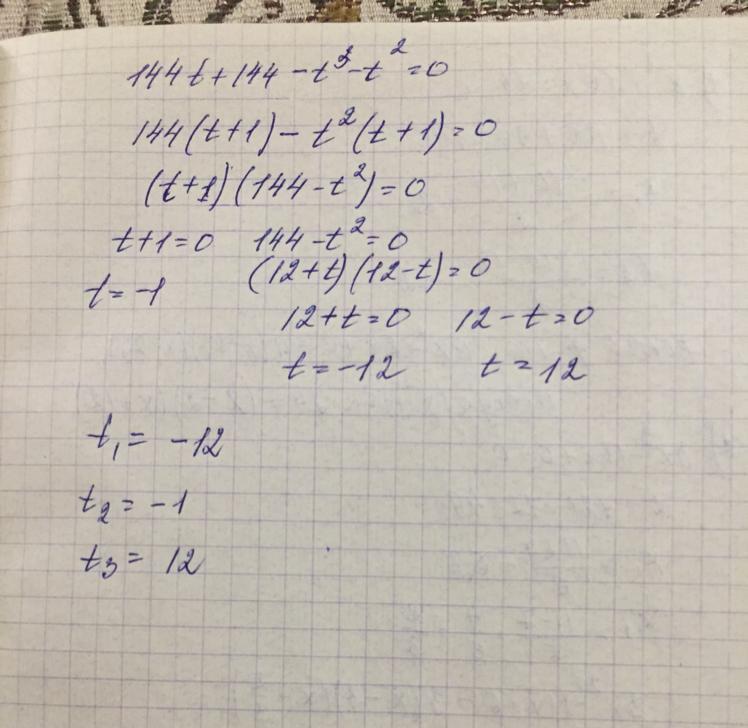 144t + 144 - t³ - t² = 0
144(t+1) - t²(t+1) = 0
(t+1)(144 - t²) = 0
t+1=0 144 - t² = 0
(12+t)(12-t) = 0
t = -1
12+t=0 12-t=0
t = -12 t = 12
t₁ = -12
t₂ = -1
t₃ = 12